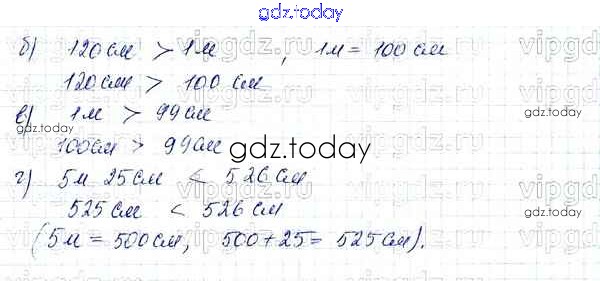 gdz.today
б) 120 см > 1 м , 1 м = 100 см
120 см > 100 см
в) 1 м > 99 см
100 см > 99 см
gdz.today
г) 5 м 25 см < 526 см
525 см < 526 см
(5 м = 500 см, 500 + 25 = 525 см).
gdz.today
gdz.today
gdz.today
gdz.today
vipgdz.ru
vipgdz.ru